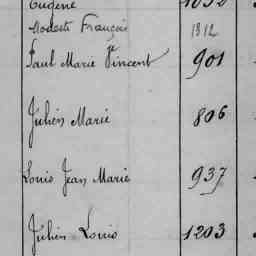 Eugène 1052
Modeste François 1312
Paul Marie Vincent 901
Julien Marie 806
Louis Jean Marie 937
Julien Louis 1203